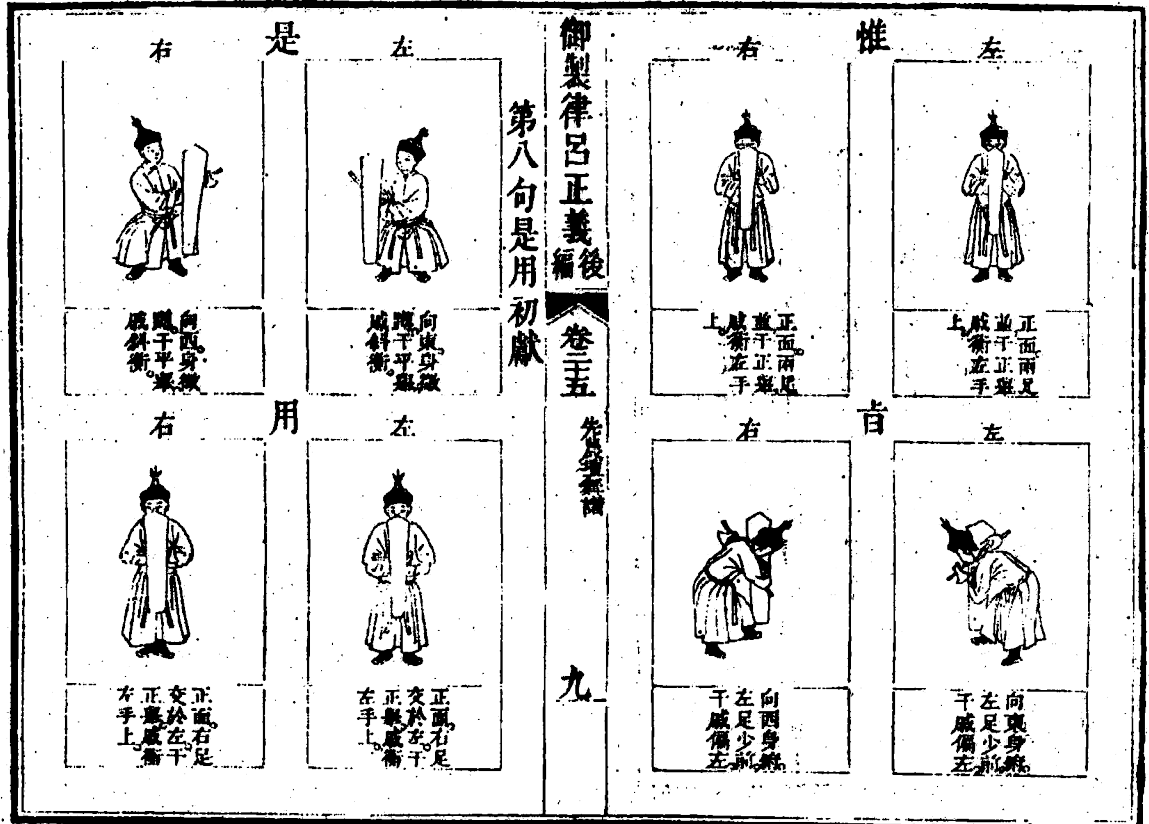 惟
左
正面兩足
並干正舉
戚衡左手
上
右
正面兩足
並干正舉
戚衡左手
上
旨
左
向東身俯
左足少前
干戚偏左
右
向西身俯
左足少前
干戚偏左
御製律呂正義後編
卷三十五
九
第八句是用初獻
是
左
向東身微
蹲干平舉
戚斜衡
右
向西身微
蹲干平舉
戚斜衡
用
左
正面右足
交於左干
正舉戚衡
左手上
右
正面右足
交於左干
正舉戚衡
左手上